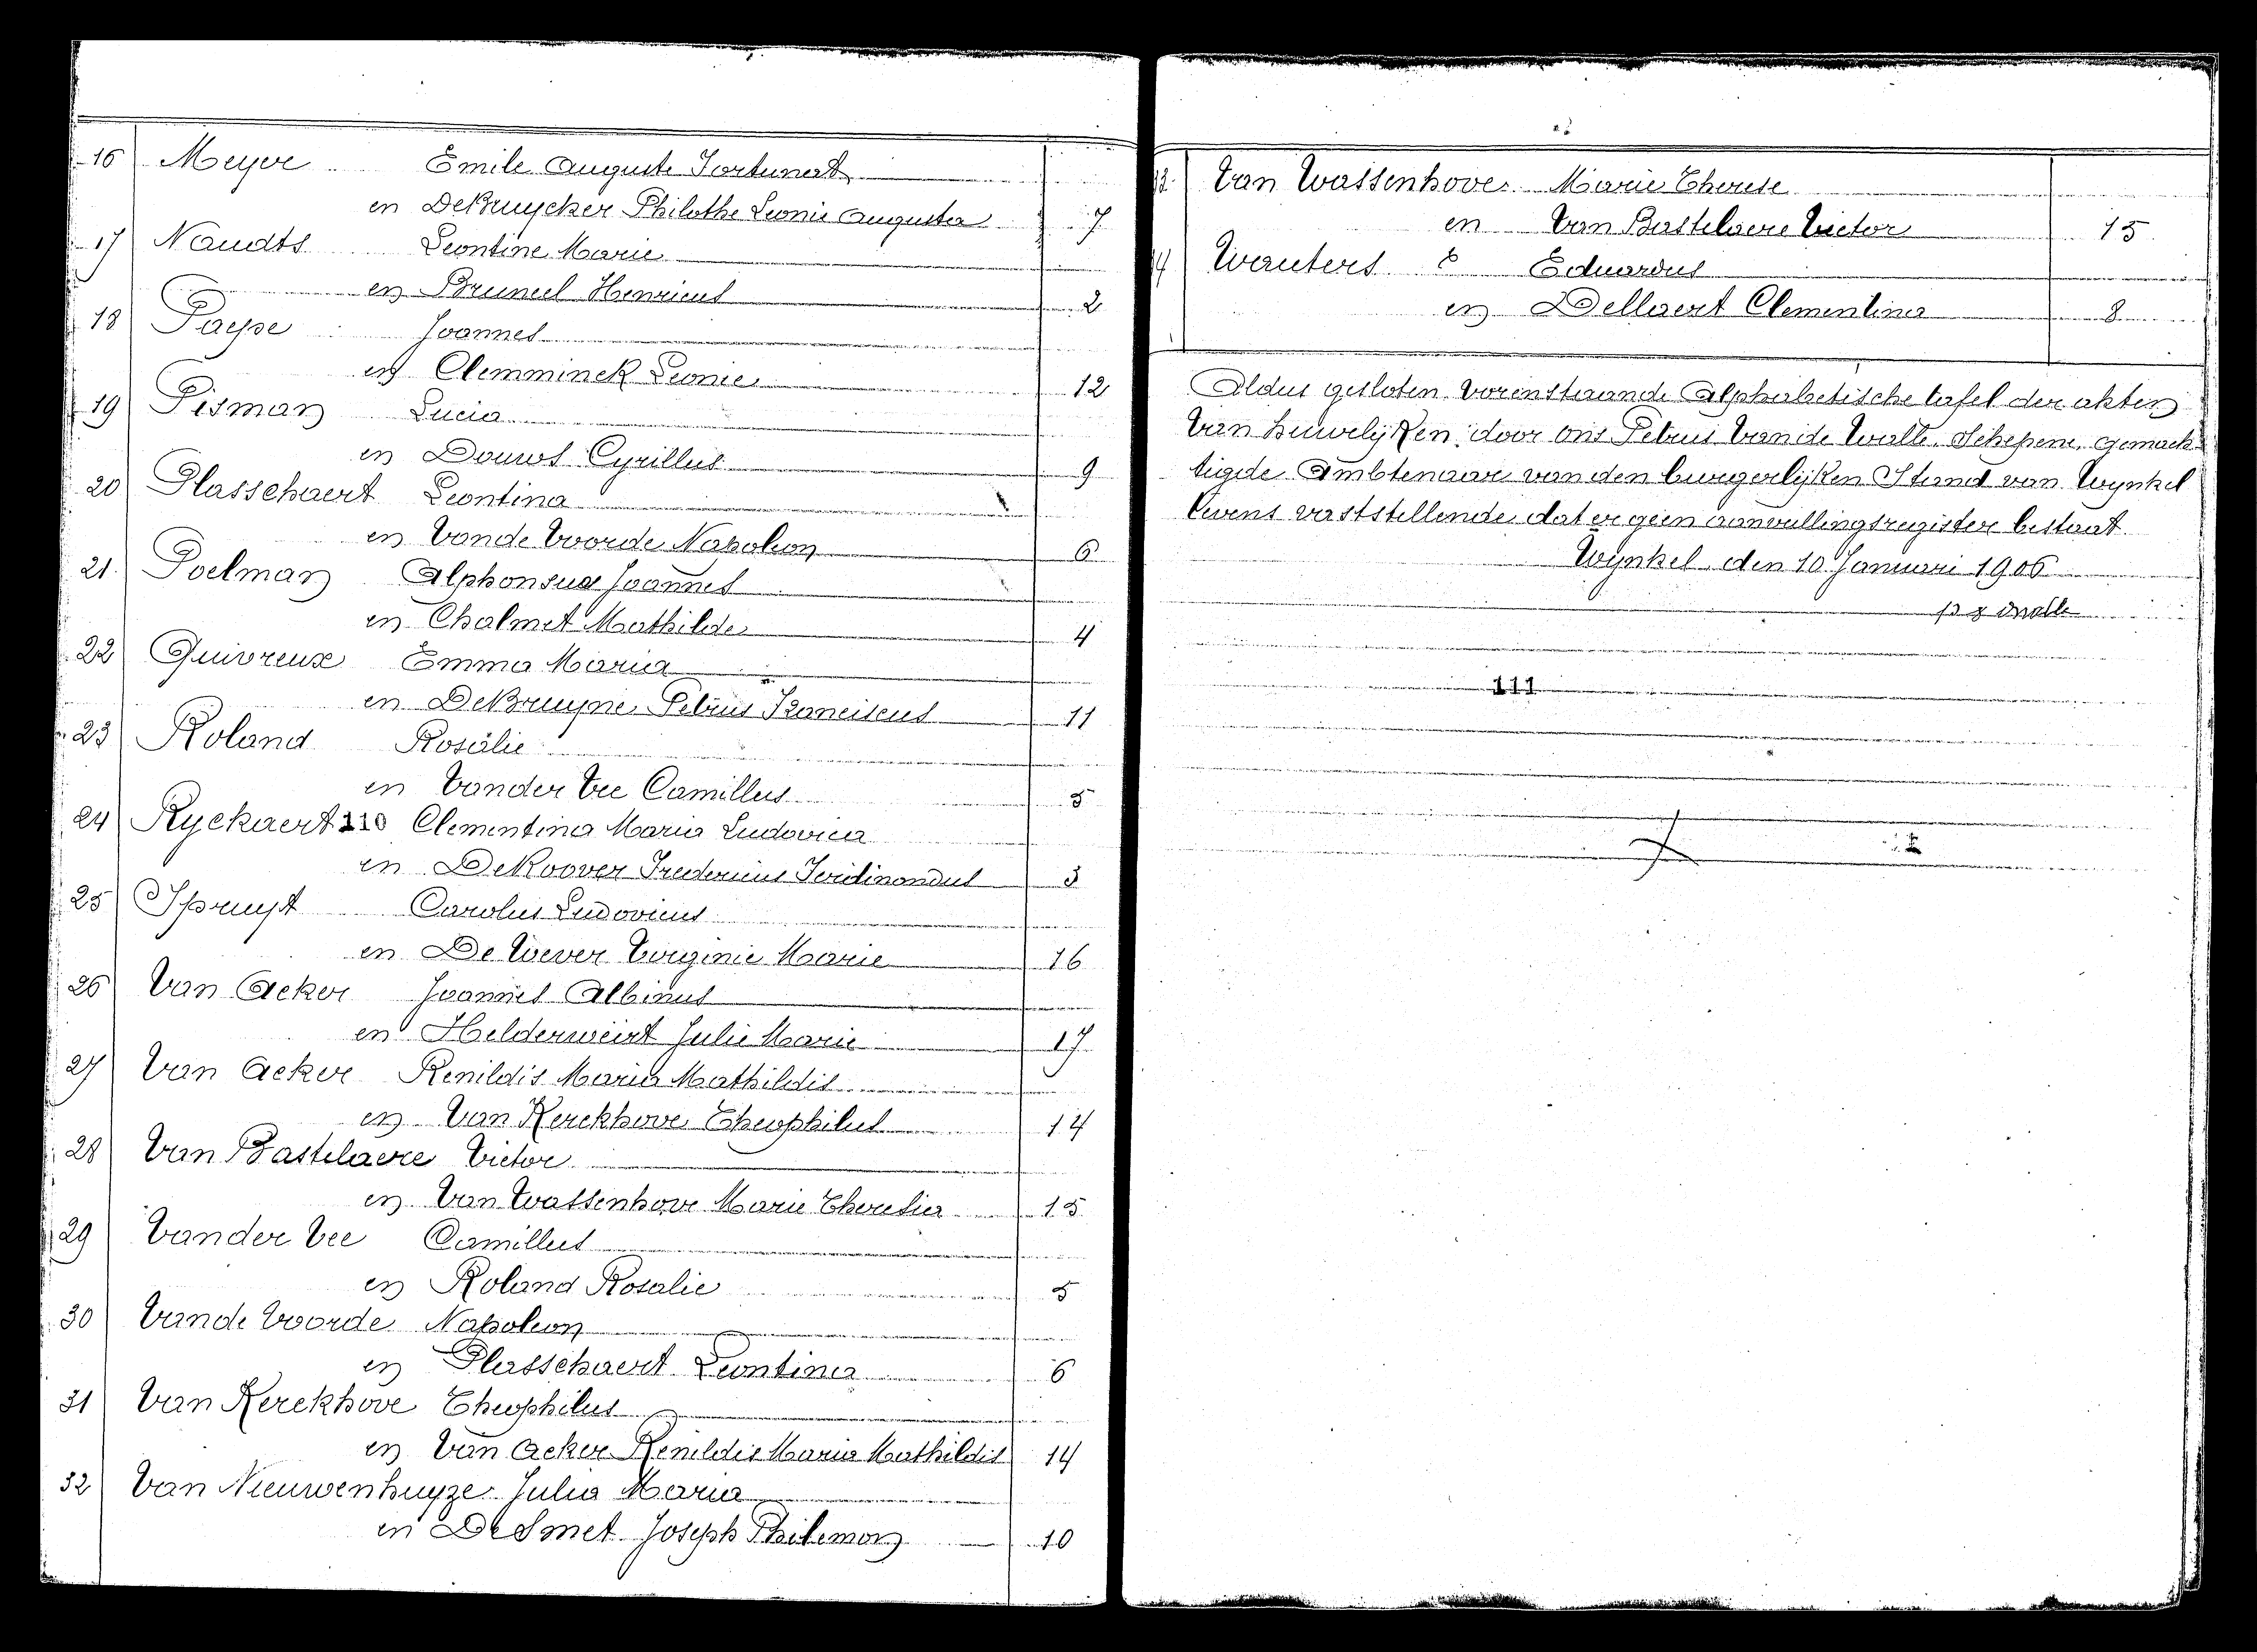 16 Meyer Emile Auguste Fortunat
en DeBruycker Philothe Leonie Augusta 7
17 Naudts Leontine Marie
en Bruneel Henricus 2
18 Paepe Joannes
en Clemminck Leonie 12
19 Pisman Lucia
en Douws Cyrillus 9
20 Plasschaert Leontina
en Vande Voorde Napoleon 6
21 Poelman Alphonsus Joannes
en Chalmet Mathilde 4
22 Quivreux Emma Maria
en DeBruyne Petrus Franciscus 11
23 Roland Rosalie
en Vander Vee Camillus 5
24 Ryckaert 110 Clementina Maria Ludovica
en DeKoover Fredericus Ferdinandus 3
25 Spruyt Carolus Ludovicus
en De Wever Virginie Marie 16
26 Van Acker Joannes Albinus
en Helderweirt Julie Marie 17
27 Van Acker Renildis Maria Mathildis
en Van Kerckhove Theophilus 14
28 Van Bastelaere Victor
en Van Wassenhove Marie Theresia 15
29 Vander Vee Camillus
en Roland Rosalie 5
30 Vande Voorde Napoleon
en Plasschaert Leontina 6
31 Van Kerckhove Theophilus
en Van Acker Renildis Maria Mathildis 14
32 Van Nieuwenhuyze Julia Maria
en DeSmet Joseph Philemon 10
Van Wassenhove Marie Therese
en Van Bastelaere Victor 15
Wauters Eduardus
en Dellaert Clementina 8
Aldus gesloten vorenstaande Alphabetische tafel der akten
van huwelijken door ons Petrus Van de Walle, Schepene, gemach-
tigde Ambtenaar van den burgerlijken Stand van Wynkel
tevens vaststellende dat er geen aanvullingsregister bestaat
Wynkel, den 10 Januari 1906
111